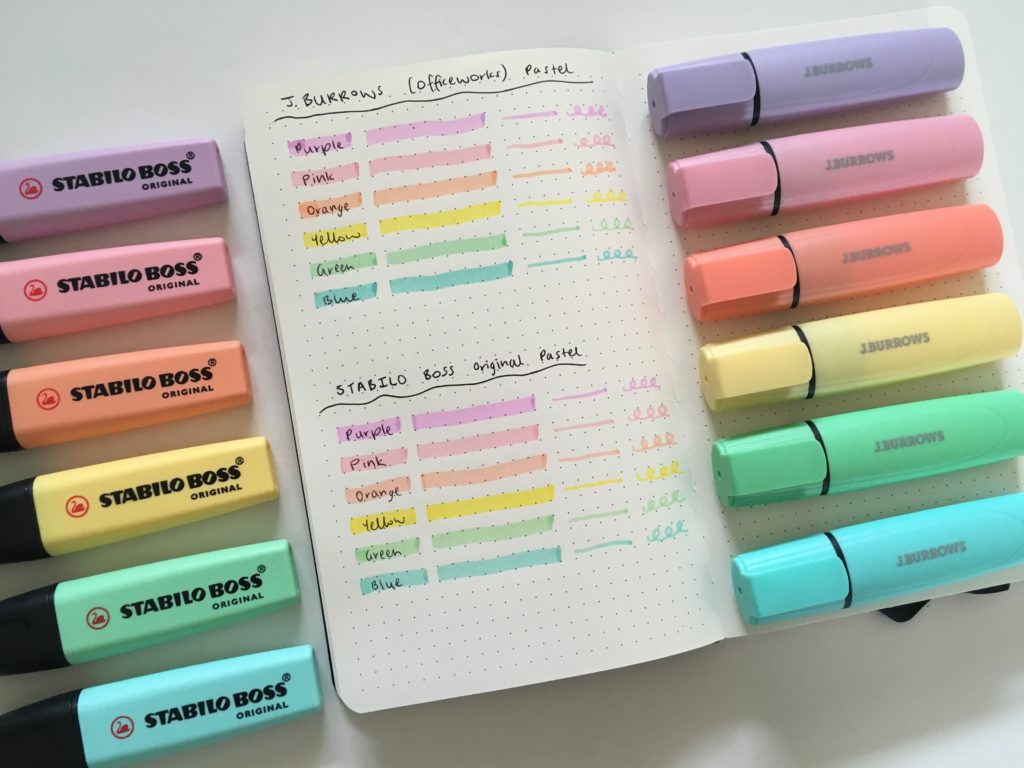 J. BURROWS (Officeworks) Pastel
Purple
Pink
Orange
Yellow
Green
Blue
STABILO BOSS Original Pastel
Purple
Pink
Orange
Yellow
Green
Blue
STABILO BOSS®
ORIGINAL
STABILO BOSS®
ORIGINAL
STABILO BOSS®
ORIGINAL
STABILO BOSS®
ORIGINAL
STABILO BOSS®
ORIGINAL
STABILO BOSS®
ORIGINAL
J.BURROWS
J.BURROWS
J.BURROWS
J.BURROWS
J.BURROWS
J.BURROWS